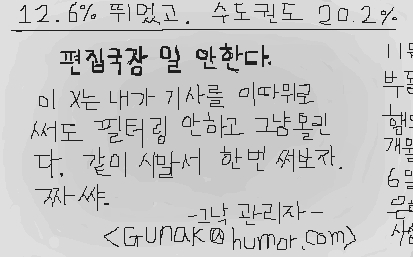 12.6% 뛰었고. 수도권도 20.2%
편집국장 일 안한다.
이 X는 내가 기사를 이따위로
써도 필터링 안하고 그냥 올린
다. 같이 시말서 한번 써보자.
짜샤.
-그낙 관리자-
<GUNAK@humor.com>
11
부
행
개월
6일
은